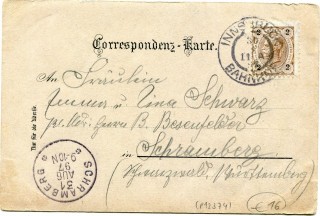 Correspondenz-Karte.
INNSBRUCK
BAHNHOF
2 2
2 2
An Fräulein
Emma u. Lina Schwarz
pr. Adr. Herrn B. Besenfelder
in Schramberg
(Schwarzwald. Württemberg)
Nur für die Adresse
SCHRAMBERG
31
AUG
97
9-10N
(€ 16)